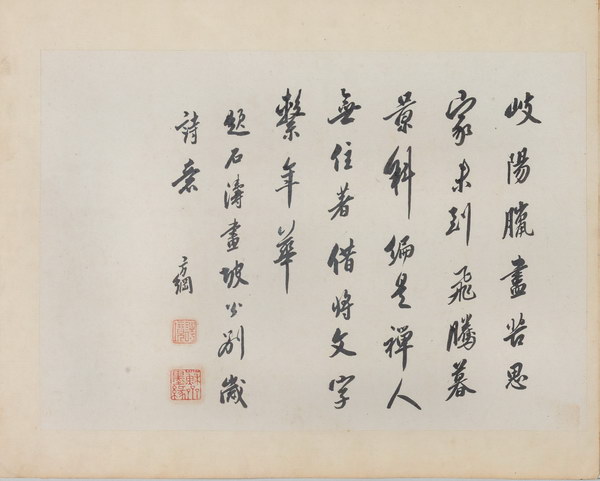 岐陽臘盡苦思
家未到飛騰暮
景斜偏是禪人
無住著借將文字
繫年華
題石濤畫坡公別歲
詩意
方綱